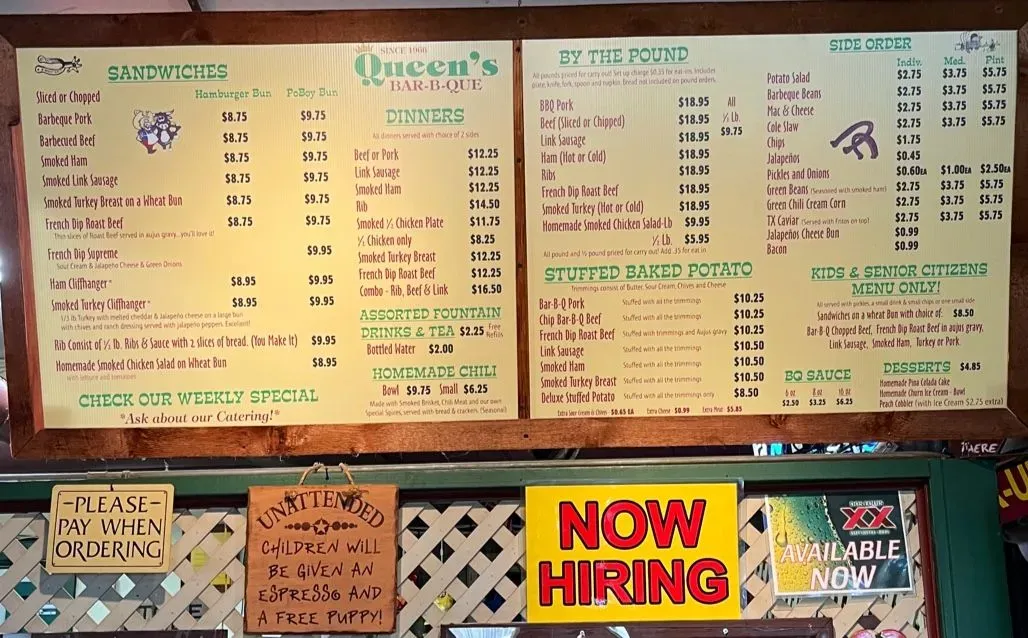 SANDWICHES
Hamburger Bun PoBoy Bun
Sliced or Chopped
Barbeque Pork $8.75 $9.75
Barbecued Beef $8.75 $9.75
Smoked Ham $8.75 $9.75
Smoked Link Sausage $8.75 $9.75
Smoked Turkey Breast on a Wheat Bun $8.75 $9.75
French Dip Roast Beef $8.75 $9.75
Thin slices of Roast Beef served in aujus gravy...you'll love it!
French Dip Supreme $9.95
Sour Cream & Jalapeño Cheese & Green Onions
Ham Cliffhanger* $8.95 $9.95
Smoked Turkey Cliffhanger* $8.95 $9.95
1/3 lb Turkey with melted cheddar & Jalapeno cheese on a large bun
with chives and ranch dressing served with jalapeño peppers. Excellent!
Rib Consist of ½ lb. Ribs & Sauce with 2 slices of bread. (You Make It) $9.95
Homemade Smoked Chicken Salad on Wheat Bun $8.95
with lettuce and tomatoes
CHECK OUR WEEKLY SPECIAL
*Ask about our Catering!*
SINCE 1966
Queen's
BAR-B-QUE
DINNERS
All dinners served with choice of 2 sides
Beef or Pork $12.25
Link Sausage $12.25
Smoked Ham $12.25
Rib $14.50
Smoked ½ Chicken Plate $11.75
½ Chicken only $8.25
Smoked Turkey Breast $12.25
French Dip Roast Beef $12.25
Combo - Rib, Beef & Link $16.50
ASSORTED FOUNTAIN
DRINKS & TEA $2.25 Free Refills
Bottled Water $2.00
HOMEMADE CHILI
Bowl $9.75 Small $6.25
Made with Smoked Brisket, Chili Meat and our own
Special Spices, served with bread & crackers. (Seasonal)
BY THE POUND
All pounds priced for carry out! Set up charge $0.35 for eat-ins. Includes
plate, knife, fork, spoon and napkin. Bread not included on pound orders.
BBQ Pork $18.95 All
Beef (Sliced or Chipped) $18.95 ½ Lb.
Link Sausage $18.95 $9.75
Ham (Hot or Cold) $18.95
Ribs $18.95
French Dip Roast Beef $18.95
Smoked Turkey (Hot or Cold) $18.95
Homemade Smoked Chicken Salad-Lb $9.95
½ Lb. $5.95
All pound and ½ pound priced for carry out! Add .35 for eat in
STUFFED BAKED POTATO
Trimmings consist of Butter, Sour Cream, Chives and Cheese
Bar-B-Q Pork Stuffed with all the trimmings $10.25
Chip Bar-B-Q Beef Stuffed with all the trimmings $10.25
French Dip Roast Beef Stuffed with trimmings and Aujus gravy $10.25
Link Sausage Stuffed with all the trimmings $10.50
Smoked Ham Stuffed with all the trimmings $10.50
Smoked Turkey Breast Stuffed with all the trimmings $10.50
Deluxe Stuffed Potato Stuffed with all the trimmings only $8.50
Extra Sour Cream or Chives $0.65 EA Extra Cheese $0.99 Extra Meat $5.85
SIDE ORDER
Indiv. Med. Pint
Potato Salad $2.75 $3.75 $5.75
Barbeque Beans $2.75 $3.75 $5.75
Mac & Cheese $2.75 $3.75 $5.75
Cole Slaw $2.75 $3.75 $5.75
Chips $1.75
Jalapeños $0.45
Pickles and Onions $0.60EA $1.00EA $2.50EA
Green Beans (Seasoned with smoked ham) $2.75 $3.75 $5.75
Green Chili Cream Corn $2.75 $3.75 $5.75
TX Caviar (Served with Fritos on top) $2.75 $3.75 $5.75
Jalapeños Cheese Bun $0.99
Bacon $0.99
KIDS & SENIOR CITIZENS
MENU ONLY!
All served with pickles, a small drink & small chips or one small side
Sandwiches on a wheat Bun with choice of: $8.50
Bar-B-Q Chopped Beef, French Dip Roast Beef in aujus gravy,
Link Sausage, Smoked Ham, Turkey or Pork.
BQ SAUCE
6 oz 8 oz 16 oz
$2.50 $3.25 $6.25
DESSERTS $4.85
Homemade Pina Colada Cake
Homemade Churn Ice Cream - Bowl
Peach Cobbler (with Ice Cream $2.75 extra)
-PLEASE-
PAY WHEN
ORDERING
UNATTENDED
CHILDREN WILL
BE GIVEN AN
ESPRESSO AND
A FREE PUPPY!
NOW
HIRING
XX
AVAILABLE
NOW